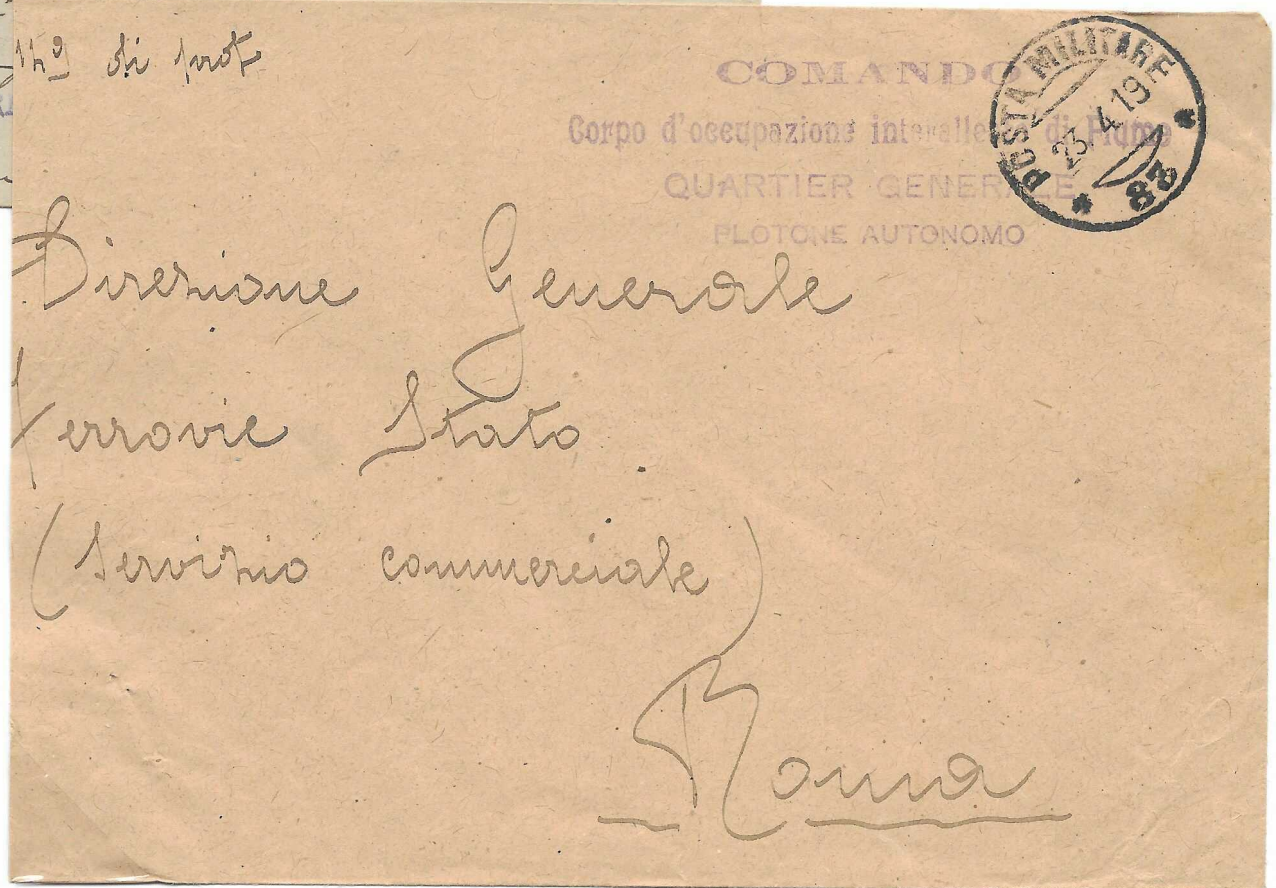 di prot
COMANDO
Corpo d'occupazione interalleato di Fiume
QUARTIER GENERALE
PLOTONE AUTONOMO
POSTA MILITARE
23.4.19
* 83 *
Direzione Generale
Ferrovie Stato
(Servizio commerciale)
Roma